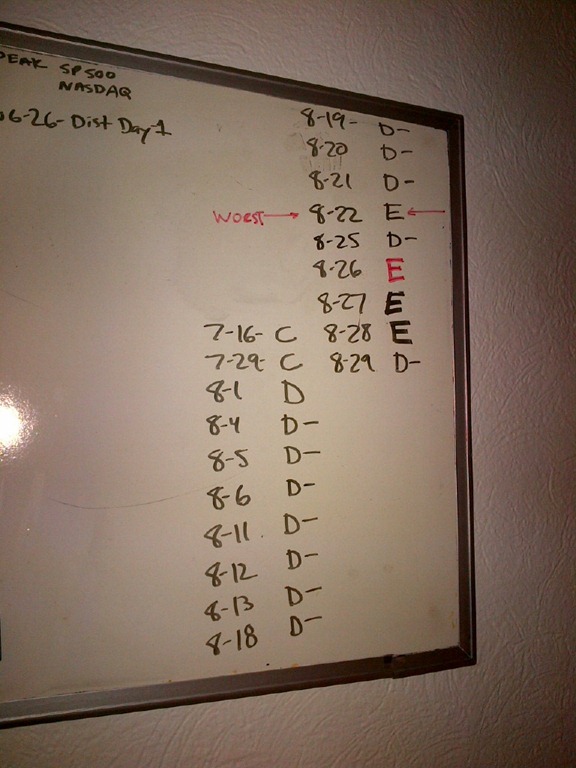 PEAK SP500
NASDAQ
06-26- Dist Day 1
8-19- D-
8-20 D-
8-21 D-
WORST → 8-22 E ←
8-25 D-
8-26 E
8-27 E
7-16- C 8-28 E
7-29- C 8-29 D-
8-1 D
8-4 D-
8-5 D-
8-6 D-
8-11 D-
8-12 D-
8-13 D-
8-18 D-